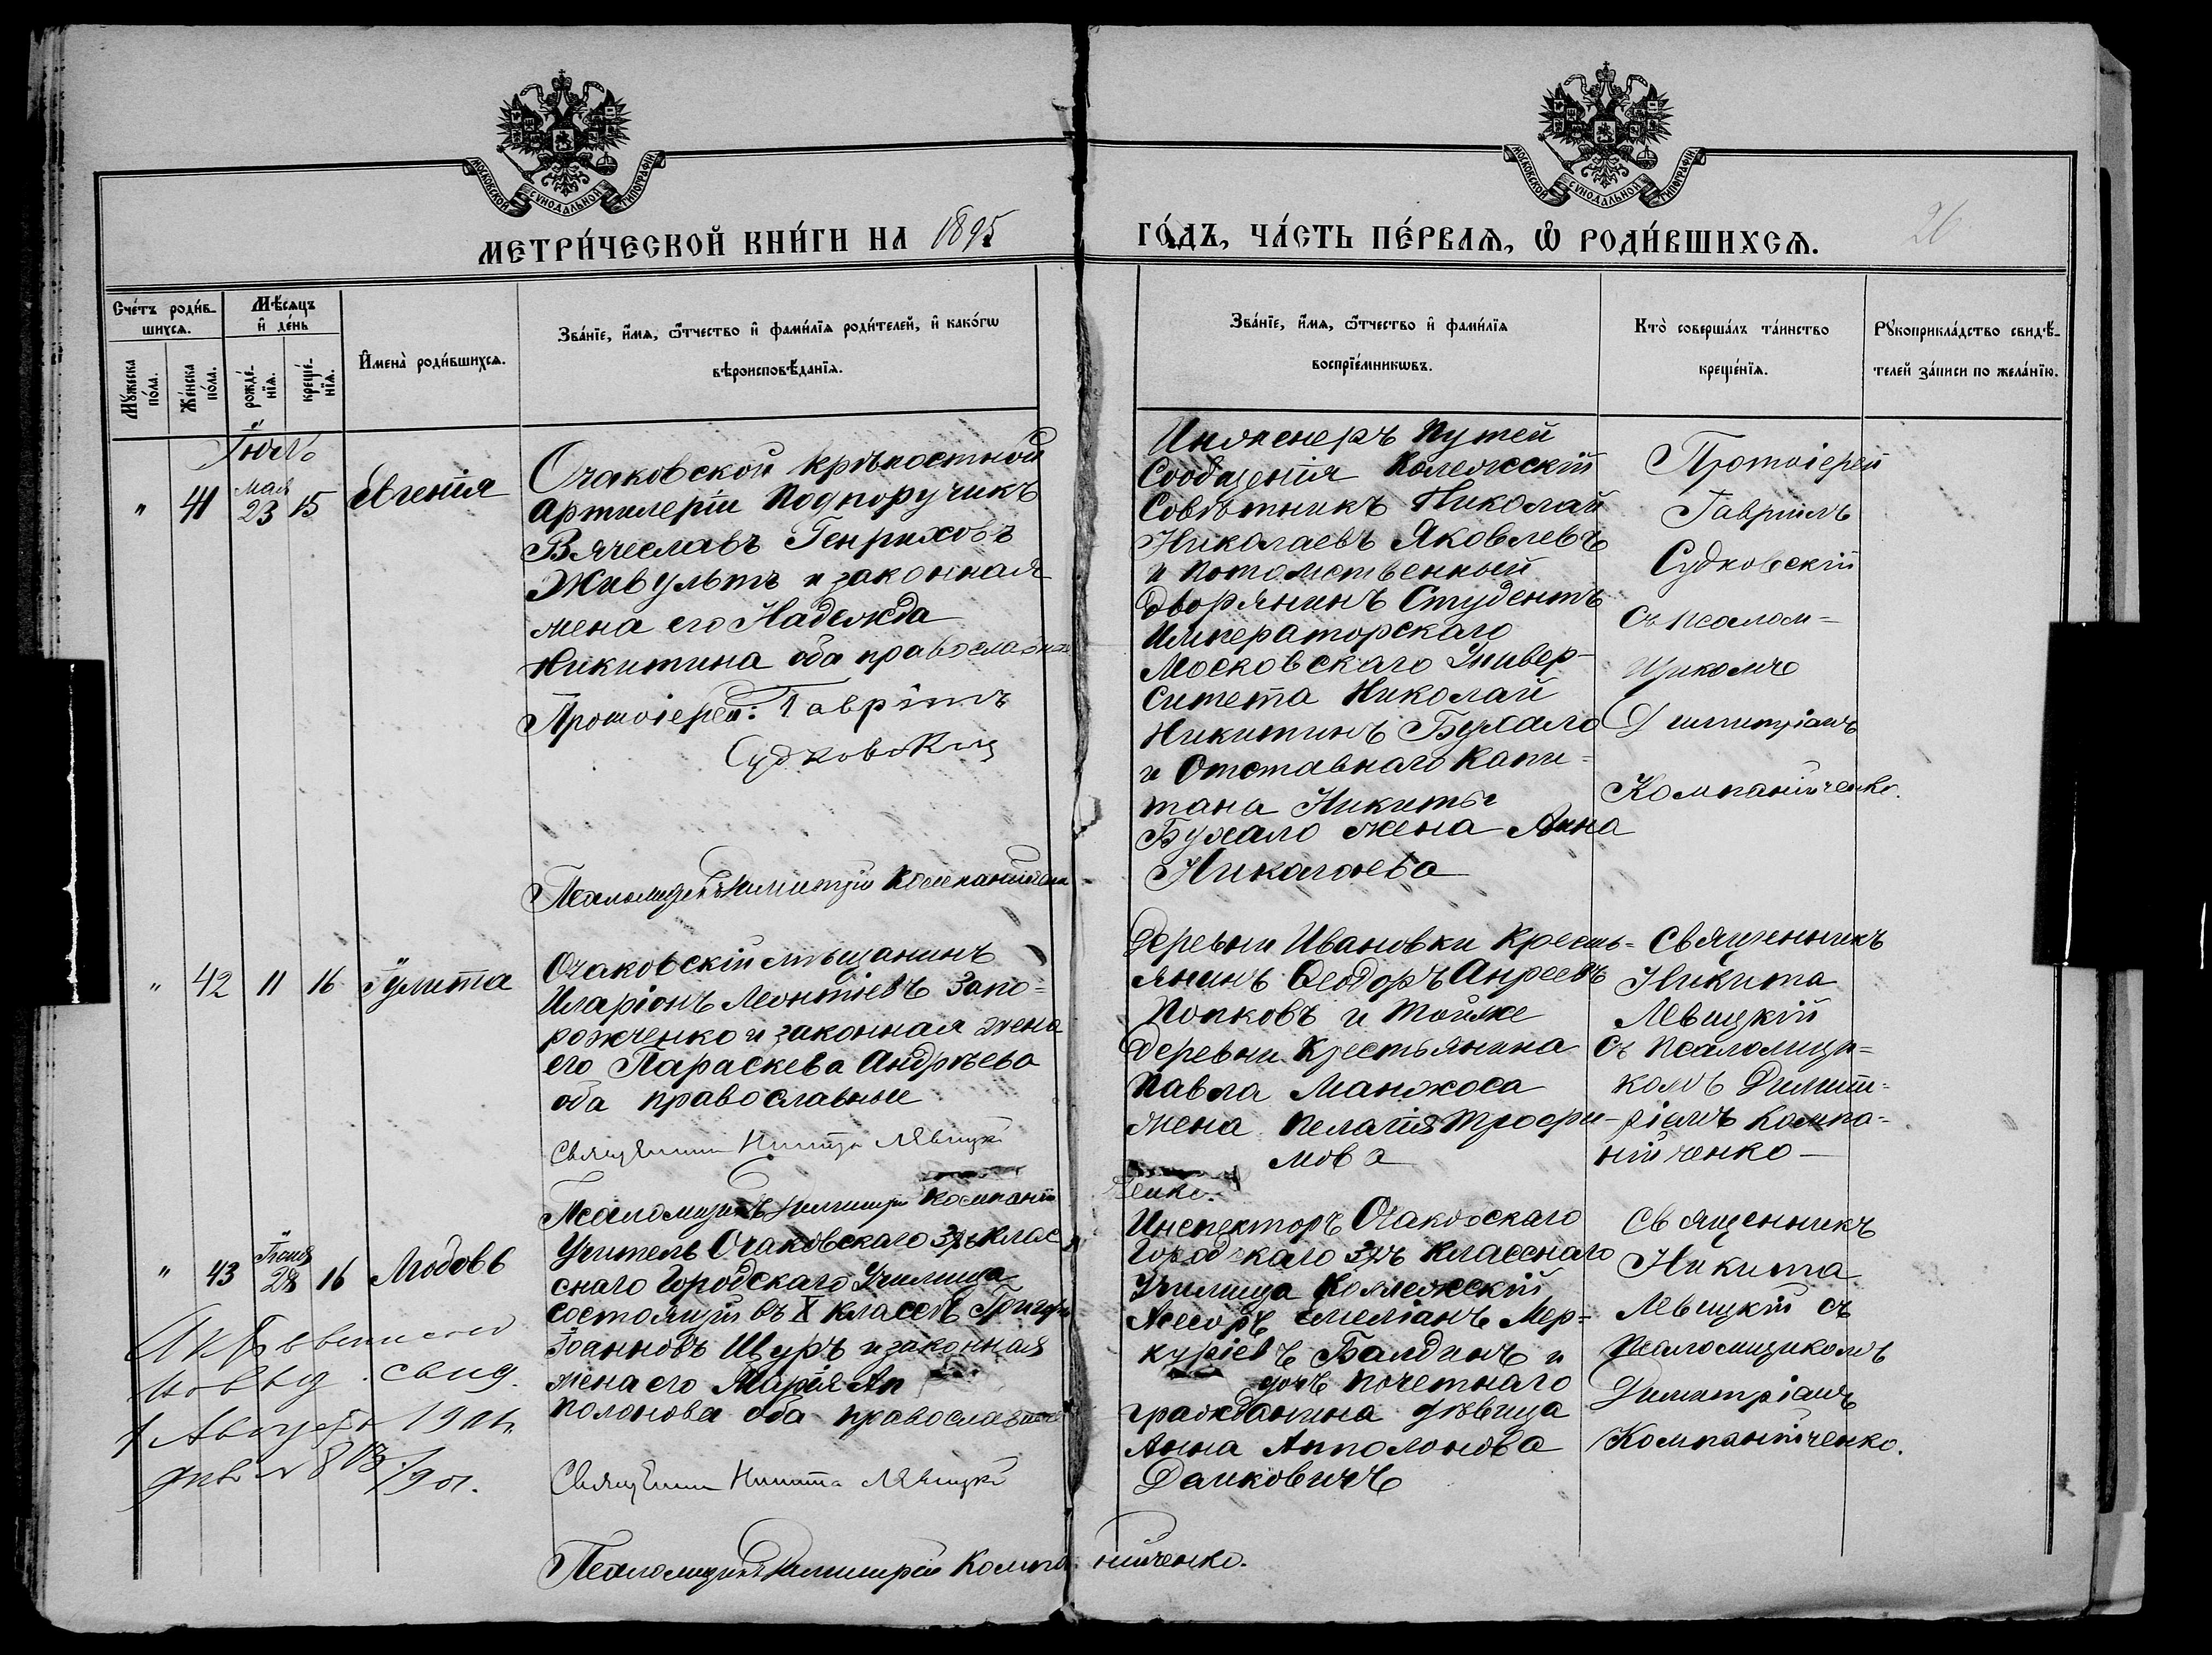 МОСКОВСКОЙ СѴНОДАЛЬНОЙ ТИПОГРАФІИ
МОСКОВСКОЙ СѴНОДАЛЬНОЙ ТИПОГРАФІИ
МЕТРИ́ЧЕСКОЙ КНИ́ГИ НА 1895
ГО́ДЪ, ЧА́СТЬ ПЕ́РВАѦ, Ѡ РОДИ́ВШИХСѦ.
26
Сче́тъ роди́в-
шихсѧ.
Мꙋ́жеска по́ла.
Же́нска по́ла.
Мѣ́сѧцъ
и҆ де́нь
рожде́-
нїѧ.
креще́-
нїѧ.
И҆мена̀ роди́вшихсѧ.
Зва́нїе, и҆́мѧ, ѻ҆́тчество и҆ фами́лїѧ роди́телей, и҆ како́гѡ
вѣроисповѣ́данїѧ.
Зва́нїе, и҆́мѧ, ѻ҆́тчество и҆ фами́лїѧ
воспрїе́мникѡвъ.
Кто̀ соверша́лъ та́инство
креще́нїѧ.
Рꙋкоприкла́дство свидѣ́-
телей за́писи по жела́нїю.
Іюль
" 41 мая 23 15 Евгенія
Очаковской крѣпостной
Артилеріи Подпоручикъ
Вячеславъ Генриховъ
Живультъ и законная
жена его Надежда
Никитина оба православные
Протоіерей: Гавріилъ
Судковскій
Псаломщикъ Димитрій Компанійченко
Инженеръ Путей
Сообщенія Колежскій
Совѣтникъ Николай
Николаевъ Яковлевъ
и потомственный
Дворянинъ Студентъ
Императорскаго
Московскаго Универ-
ситета Николай
Никитинъ Бухало
и Отставнаго Капи-
тана Никиты
Бухало жена Анна
Николаева
Протоіерей
Гавріилъ
Судковскій
съ псалом-
щикомъ
Димитріемъ
Компанійченко.
" 42 11 16 Іулитта
Очаковскій мѣщанинъ
Иларіонъ Леонтіевъ Запо-
рожченко и законная жена
его Параскева Андрѣева
оба православные
Священник Никита Левицкій
Псаломщикъ Димитрій Компаній
ченко.
Деревни Ивановки Кресть-
янинъ Ѳеодоръ Анреевъ
Попковъ и тойже
деревни Крестьянина
Павла Манжоса
жена Пелагія Трофи-
мова
Священникъ
Никита
Левицкій
съ Псаломщи-
комъ Димит-
ріемъ Компа-
нійченко
" 43 Іюня 28 16 Любовь
Учитель Очаковскаго 3хъ клас
снаго Городскаго Училища
состоящій въ X классѣ Григорій
Іоанновъ Щуръ и законная
жена его Марія Ап
полонова оба православные
Священник Никита Левицкій
Псаломщикъ Димитрій Компа нійченко.
Инспекторъ Очаковскаго
Городскаго 3хъ класснаго
Училища Коллежскій
Асесоръ Емеліанъ Мер-
куріевъ Балдинъ и
дочь почетнаго
гражданина дѣвица
Анна Апполонова
Данковичъ
Священникъ
Никита
Левицкій съ
Псаломщикомъ
Димитріемъ
Компанійченко.
свид.
1 Августа 1901
№ 803/901.